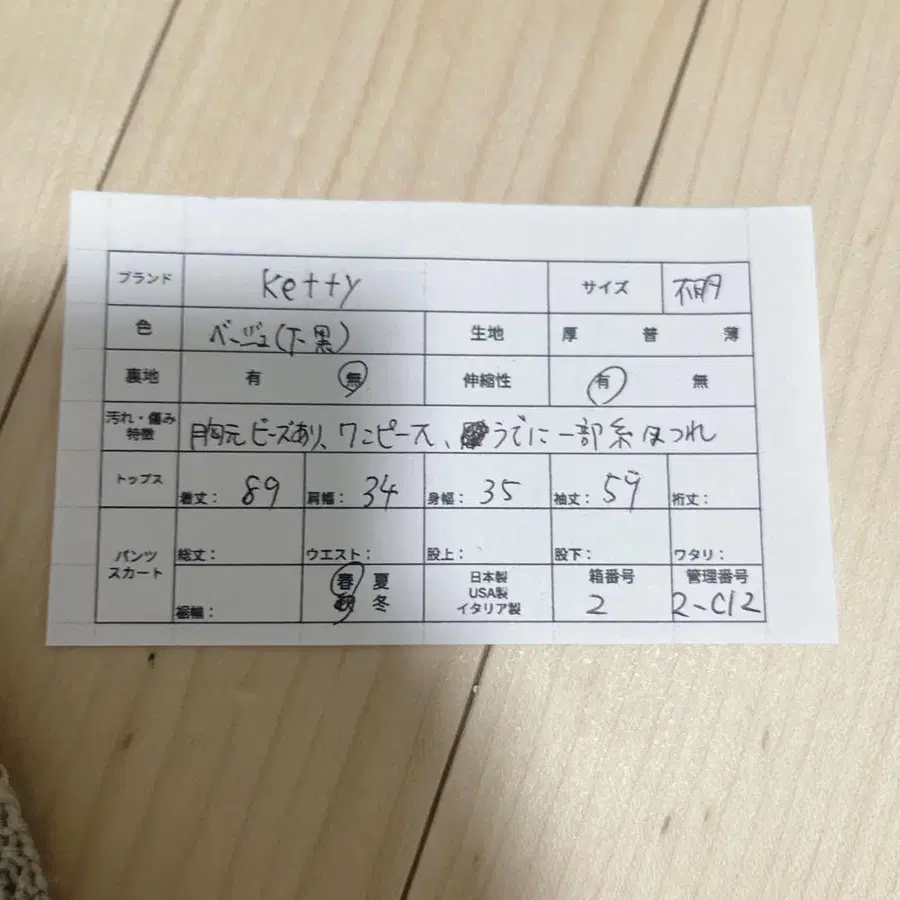 ブランド ketty サイズ 不明
色 ベージュ(下黒) 生地 厚 普 薄
裏地 有 無 伸縮性 有 無
汚れ・傷み
特徴 胸元ビーズあり、ワンピース、うでに一部糸ほつれ
トップス 着丈: 89 肩幅: 34 身幅: 35 袖丈: 59 裄丈:
パンツ
スカート 総丈: ウエスト: 股上: 股下: ワタリ:
裾幅: 春 夏
秋 冬
日本製
USA製
イタリア製
箱番号
2
管理番号
2-C12